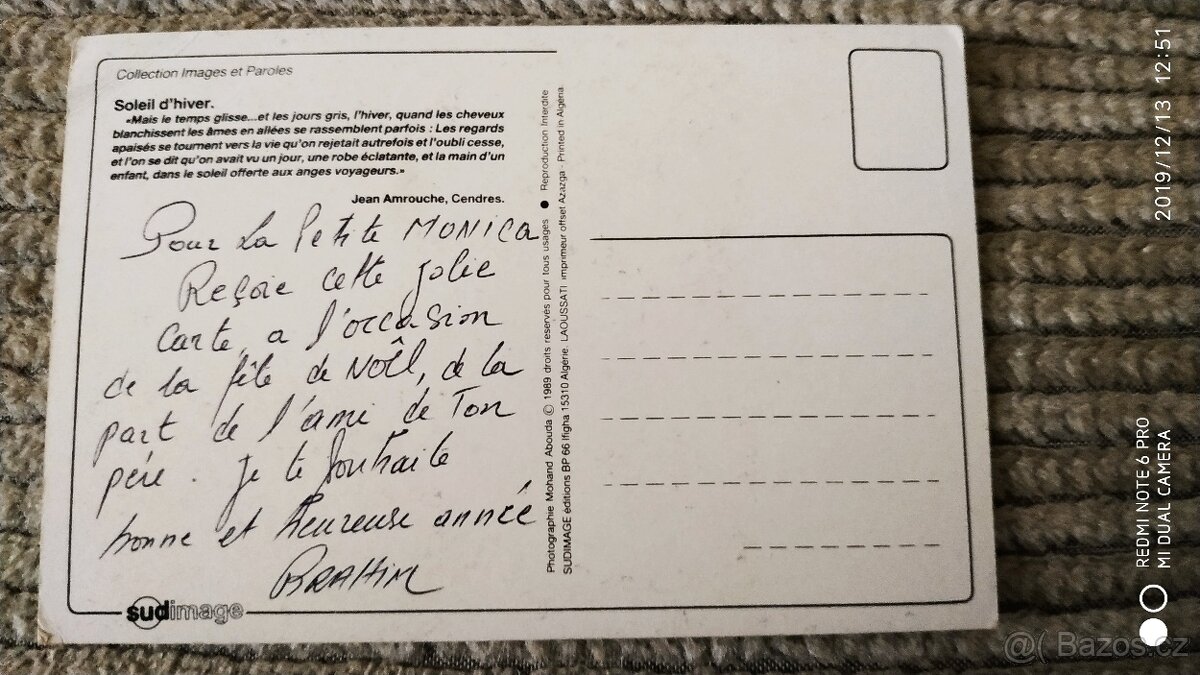 Collection Images et Paroles
Soleil d'hiver.
«Mais le temps glisse...et les jours gris, l'hiver, quand les cheveux
blanchissent les âmes en allées se rassemblent parfois : Les regards
apaisés se tournent vers la vie qu'on rejetait autrefois et l'oubli cesse,
et l'on se dit qu'on avait vu un jour, une robe éclatante, et la main d'un
enfant, dans le soleil offerte aux anges voyageurs.»
Jean Amrouche, Cendres.
Pour La Petite MONICA
Reçoie cette jolie
carte, a l'occasion
de la fête de NOÊL, de la
part de l'ami de Ton
père. Je te souhaite
bonne et heureuse année
BRAHIM
sudimage
Photographie Mohand Abouda © 1989 droits reservés pour tous usages ● Reproduction Interdite
SUDIMAGE éditions BP 66 Ifigha 15310 Algérie. LAOUSSATI imprimeur offset Azazga - Printed in Algeria.
2019/12/13 12:51
REDMI NOTE 6 PRO
MI DUAL CAMERA
Bazos.cz